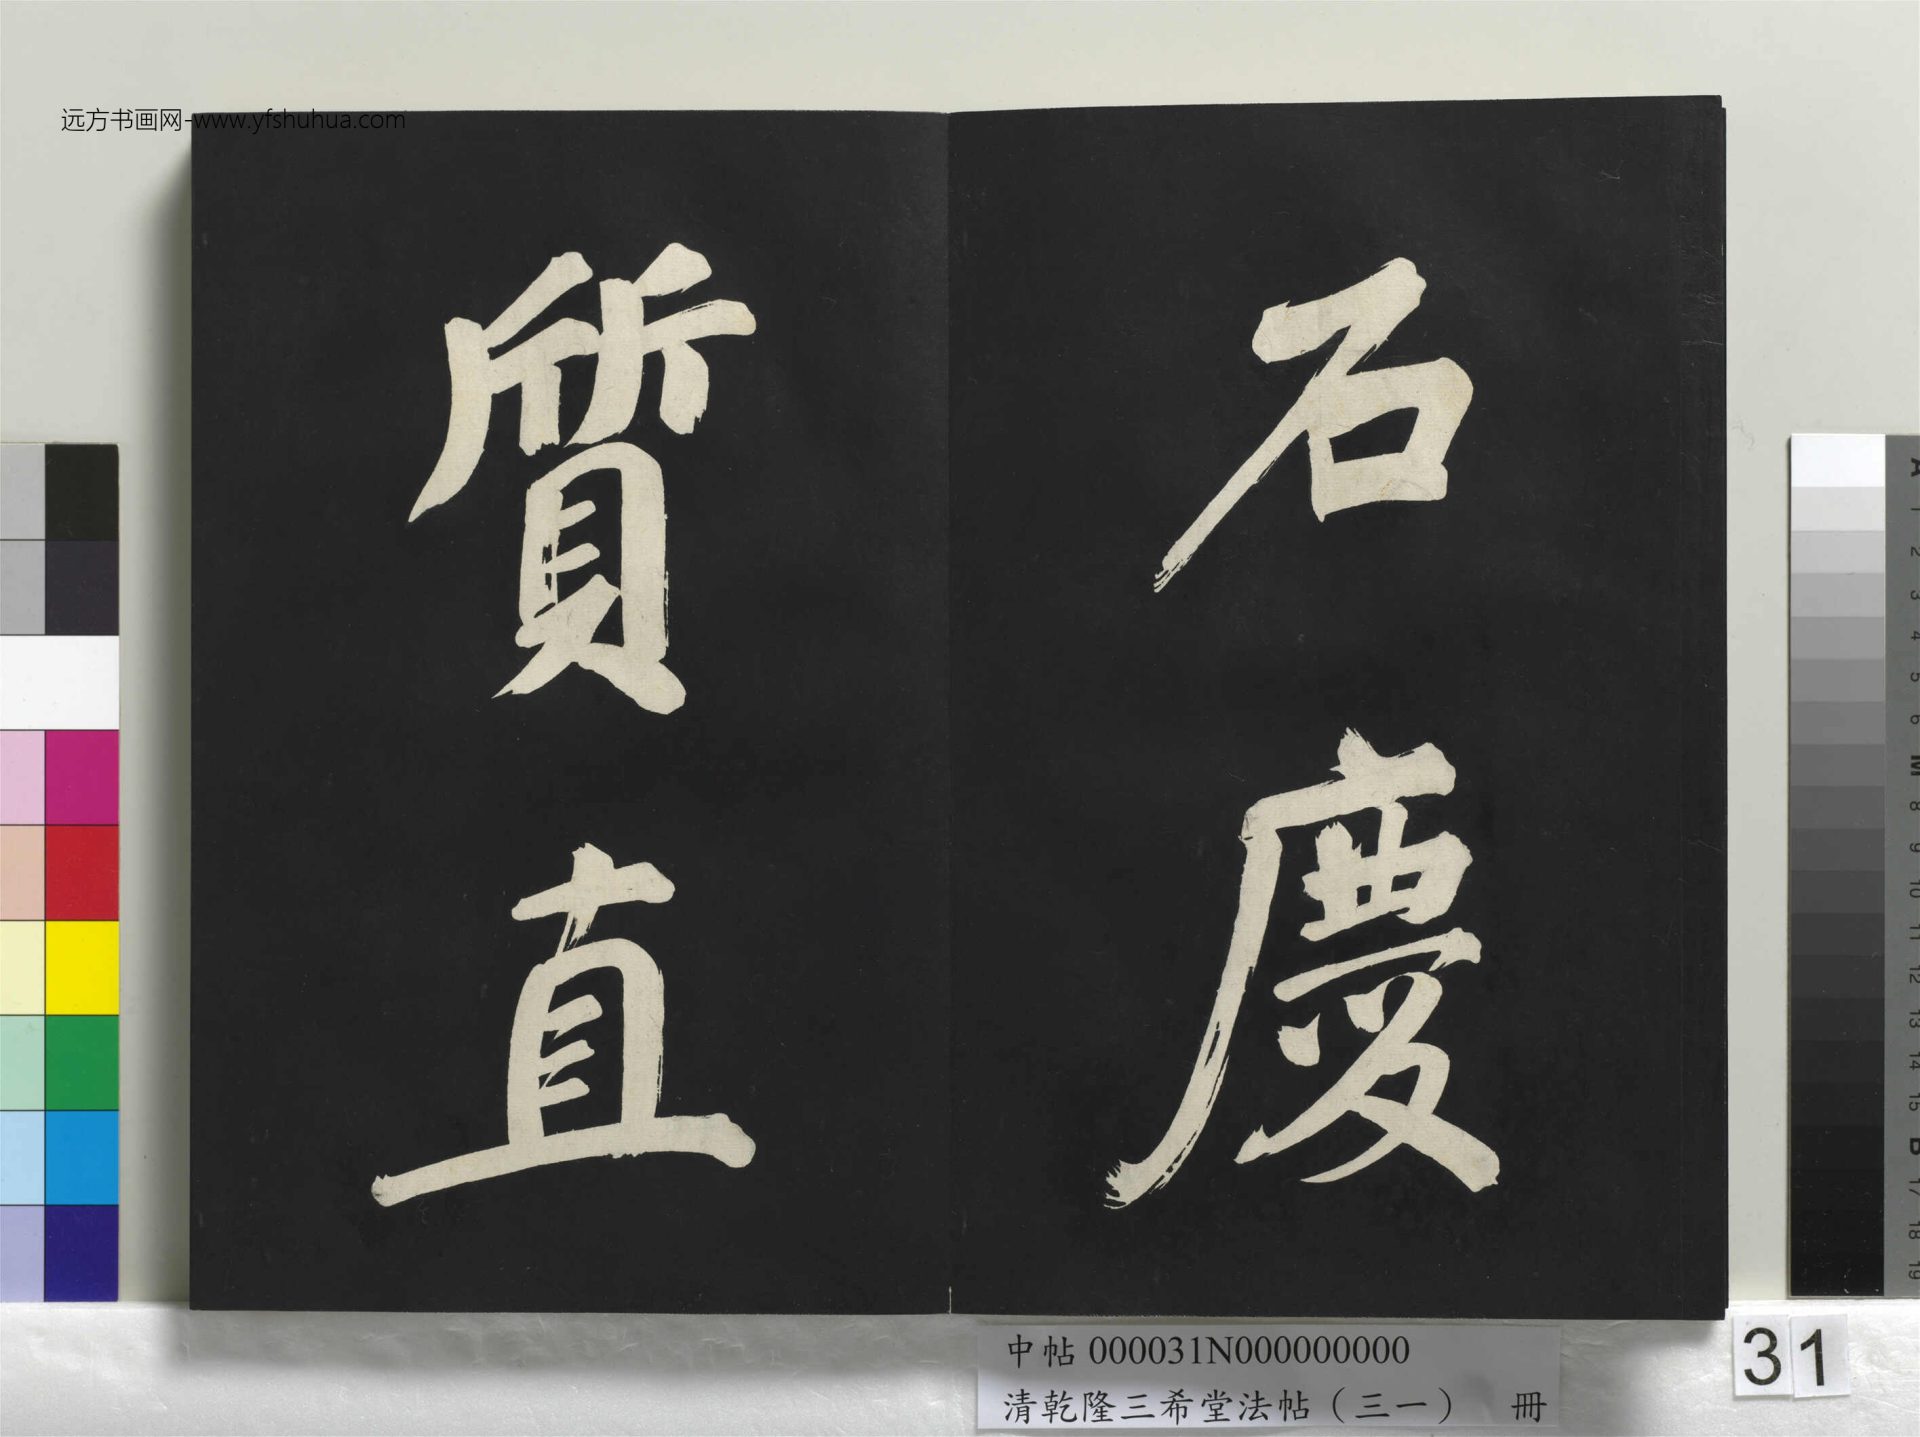 远方书画网-www.yfshuhua.com
石慶
質直
中帖 000031N000000000
清乾隆三希堂法帖（三一） 冊
31
A
1
2
3
4
5
6
M
8
9
10
11
12
13
14
15
B
17
18
19